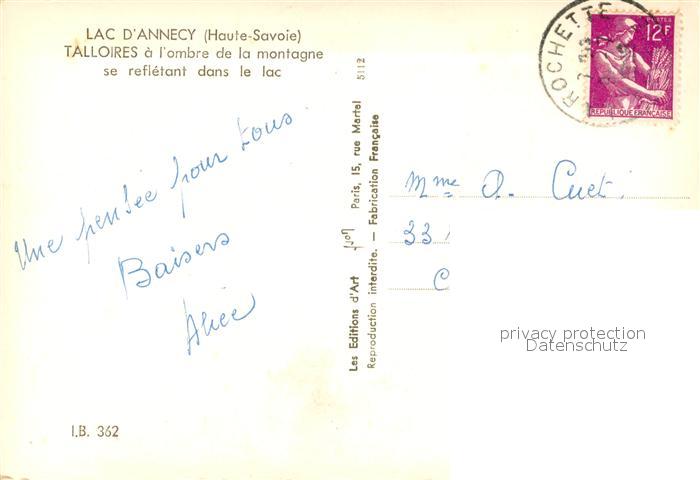 LAC D'ANNECY (Haute-Savoie)
TALLOIRES à l'ombre de la montagne
se reflétant dans le lac
Une pensée pour tous
Baisers
Alice
I.B. 362
5112
Les Editions d'Art Paris, 15, rue Martel
Reproduction interdite. — Fabrication Française
ROCHETTE
POSTES
12F
REPUBLIQUE FRANÇAISE
Mme
33
C
privacy protection
Datenschutz